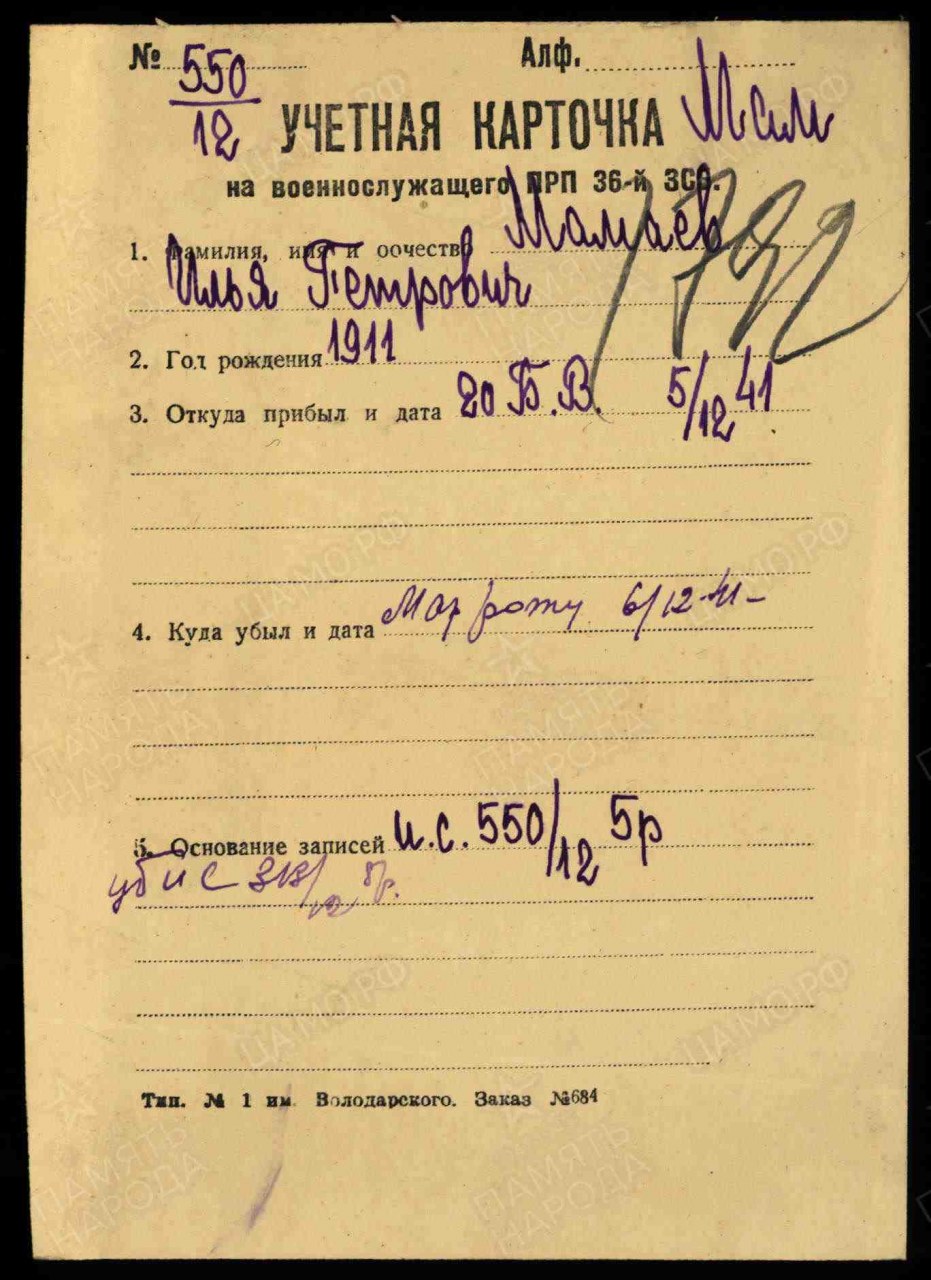 № 550/12 Алф.
УЧЕТНАЯ КАРТОЧКА Мам
на военнослужащего ПРП 36-й ЗСБ.
1. Фамилия, имя и оочество Мамаев
Илья Петрович
1792
2. Год рождения 1911
3. Откуда прибыл и дата 20 Б.В. 5/12 41
4. Куда убыл и дата Мар роту 6/12-41-
5. Основание записей и.с. 550/12 5р
уб и с 313/12
Тип. № 1 им. Володарского. Заказ №684
ПАМЯТЬ НАРОДА
ЦАМО.РФ